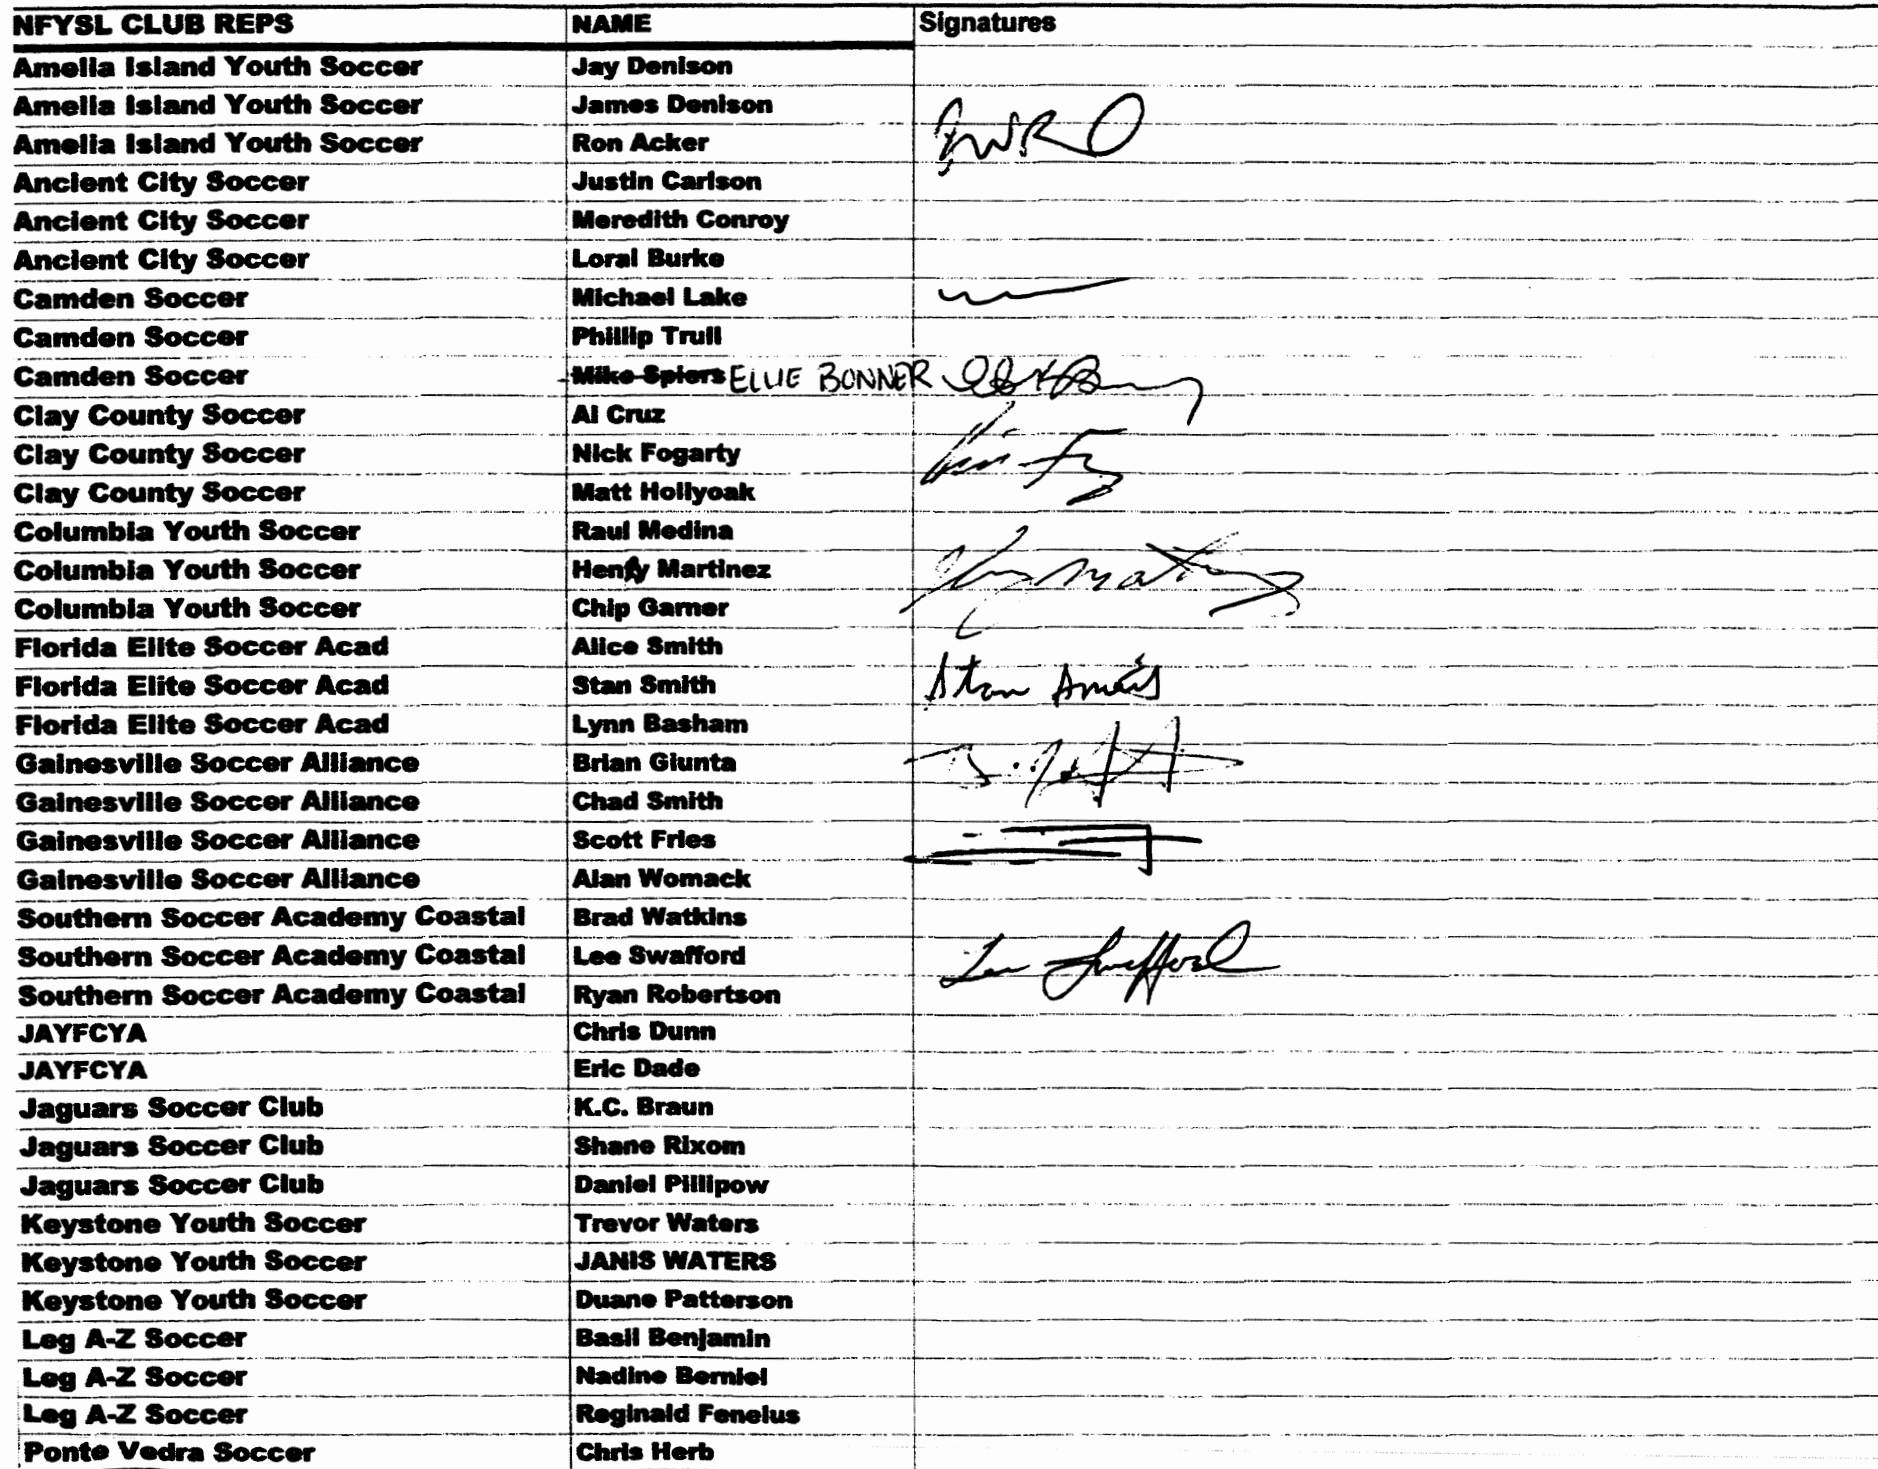 NFYSL CLUB REPS NAME Signatures
Amelia Island Youth Soccer Jay Denison
Amelia Island Youth Soccer James Denison
Amelia Island Youth Soccer Ron Acker
Ancient City Soccer Justin Carlson
Ancient City Soccer Meredith Conroy
Ancient City Soccer Loral Burke
Camden Soccer Michael Lake
Camden Soccer Phillip Trull
Camden Soccer Mike Spiers ELLIE BONNER
Clay County Soccer Al Cruz
Clay County Soccer Nick Fogarty
Clay County Soccer Matt Hollyoak
Columbia Youth Soccer Raul Medina
Columbia Youth Soccer Henry Martinez
Columbia Youth Soccer Chip Garner
Florida Elite Soccer Acad Alice Smith
Florida Elite Soccer Acad Stan Smith Stan
Florida Elite Soccer Acad Lynn Basham
Gainesville Soccer Alliance Brian Giunta
Gainesville Soccer Alliance Chad Smith
Gainesville Soccer Alliance Scott Fries
Gainesville Soccer Alliance Alan Womack
Southern Soccer Academy Coastal Brad Watkins
Southern Soccer Academy Coastal Lee Swafford Lee Swafford
Southern Soccer Academy Coastal Ryan Robertson
JAYFCYA Chris Dunn
JAYFCYA Eric Dade
Jaguars Soccer Club K.C. Braun
Jaguars Soccer Club Shane Rixom
Jaguars Soccer Club Daniel Pillipow
Keystone Youth Soccer Trevor Waters
Keystone Youth Soccer JANIS WATERS
Keystone Youth Soccer Duane Patterson
Leg A-Z Soccer Basil Benjamin
Leg A-Z Soccer Nadine Berniel
Leg A-Z Soccer Reginald Fenelus
Ponte Vedra Soccer Chris Herb